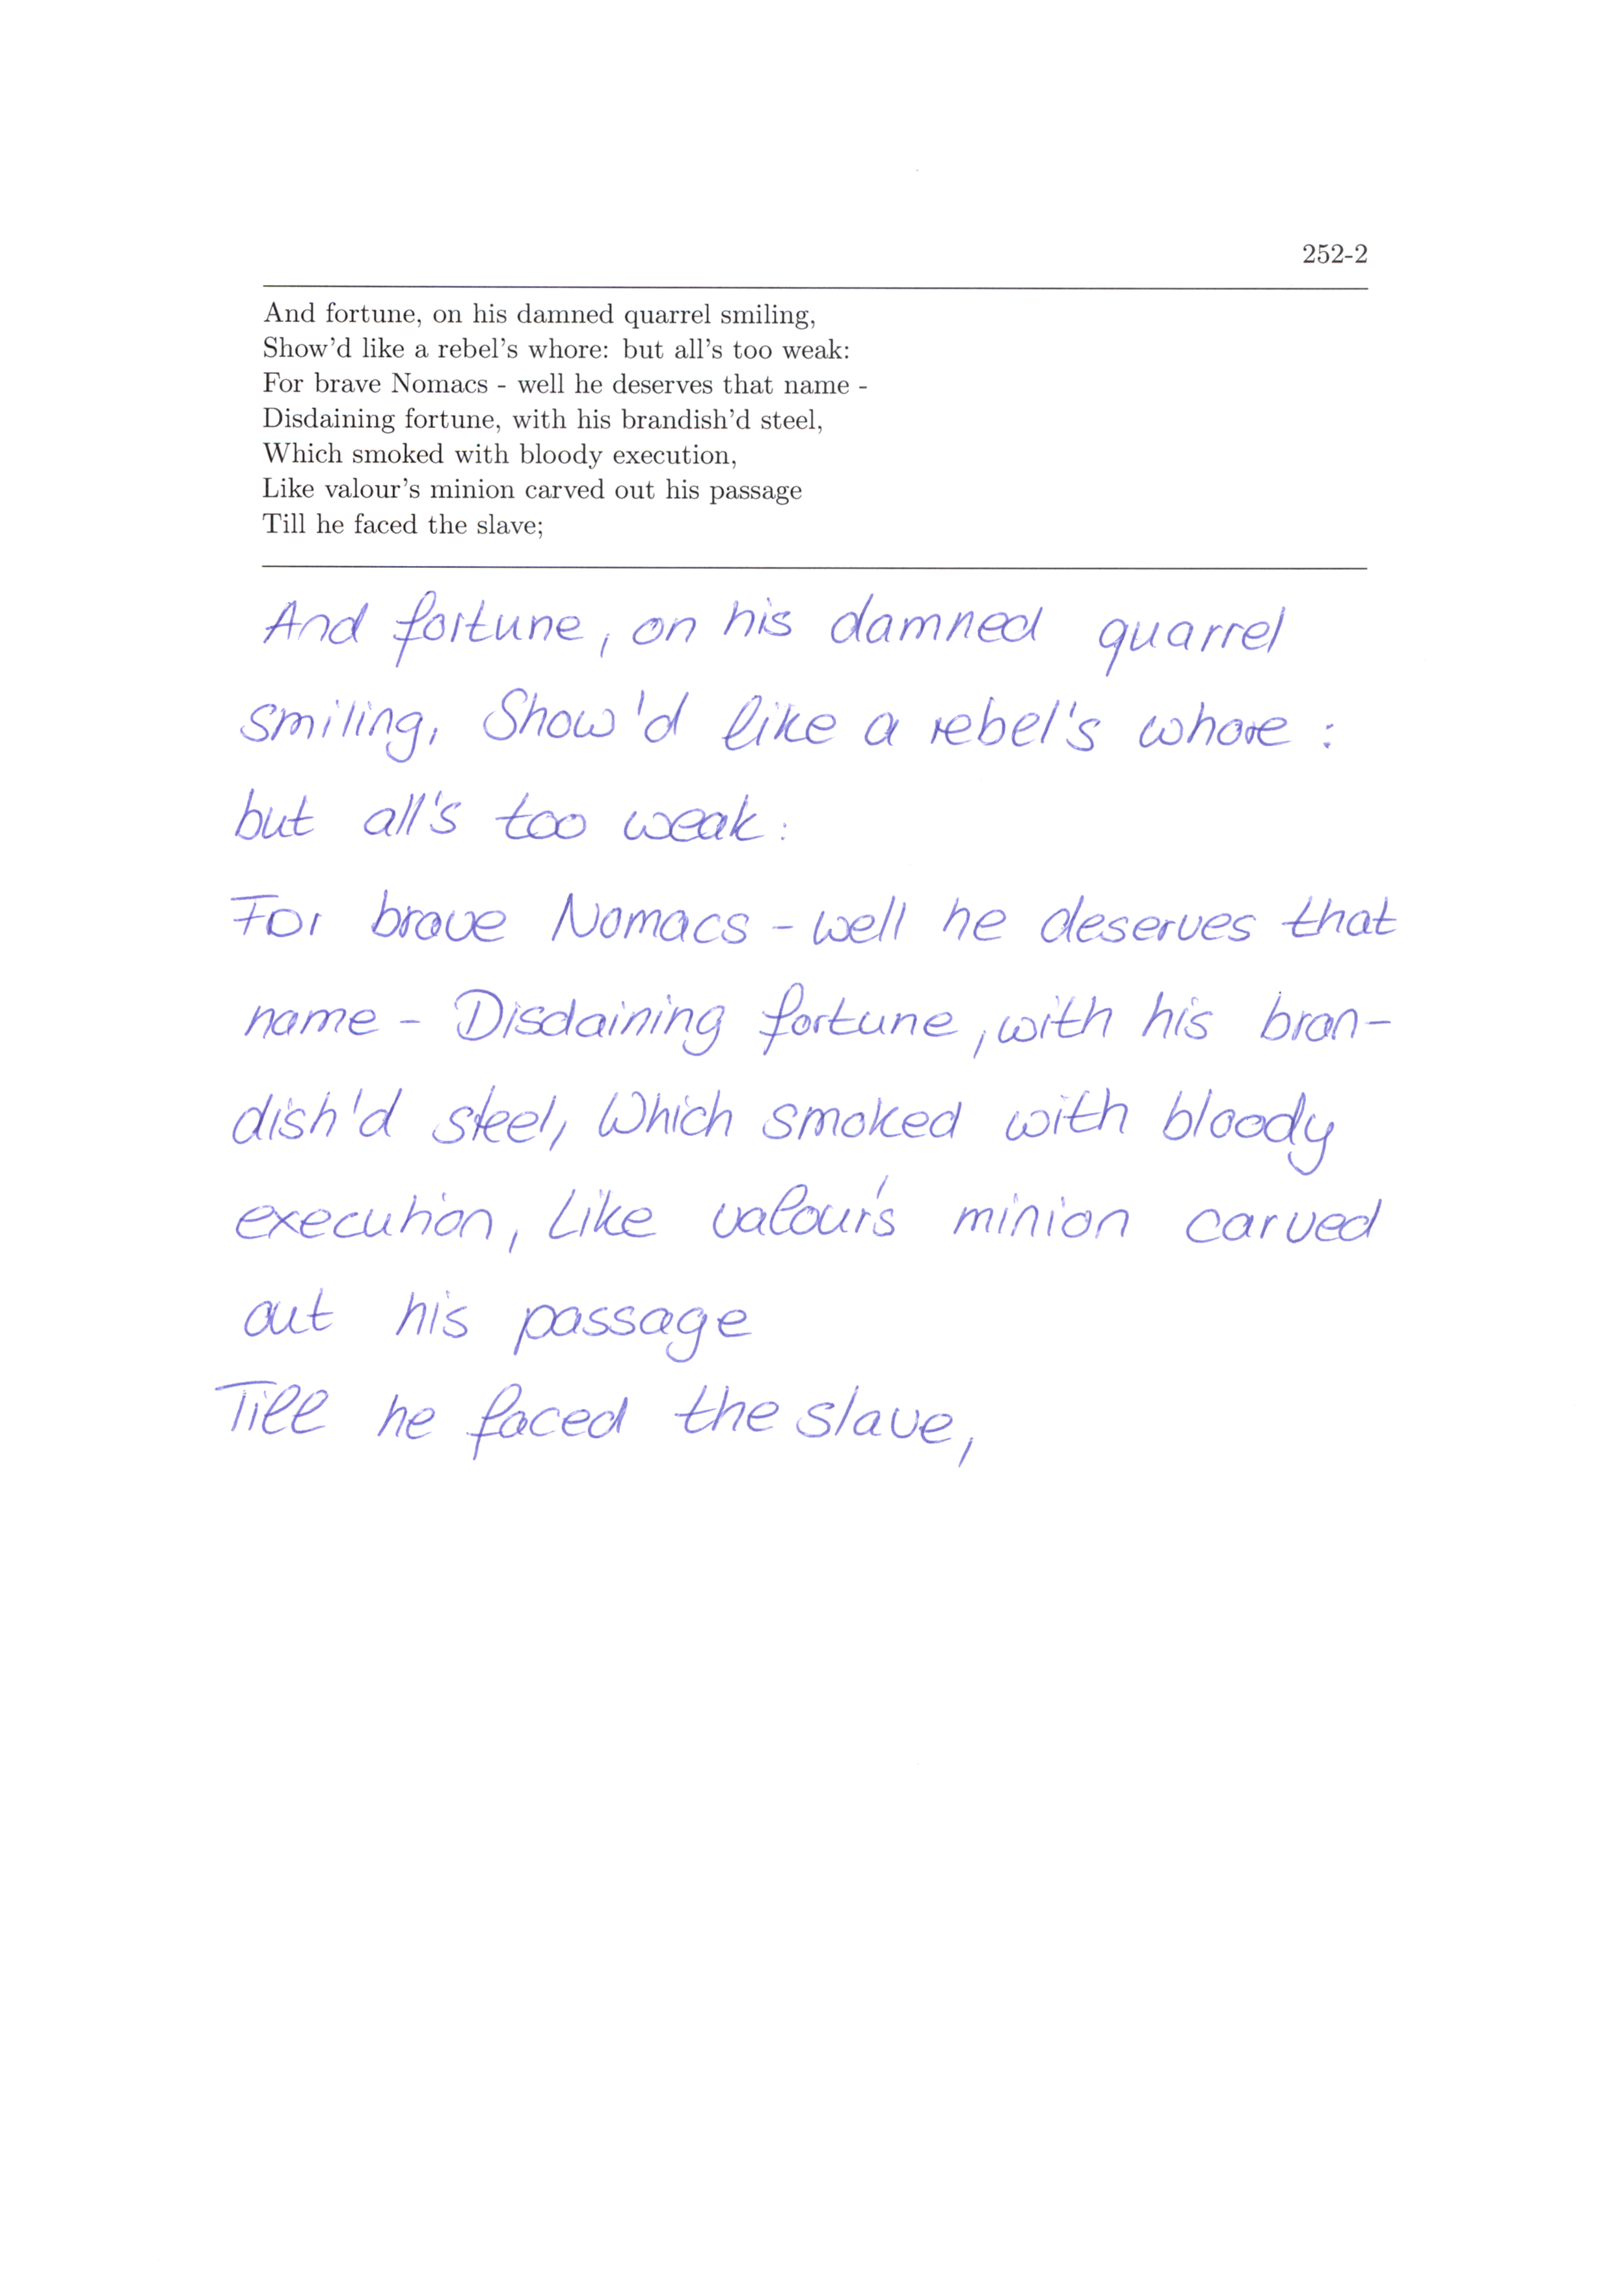 252-2
And fortune, on his damned quarrel smiling,
Show'd like a rebel's whore: but all's too weak:
For brave Nomacs - well he deserves that name -
Disdaining fortune, with his brandish'd steel,
Which smoked with bloody execution,
Like valour's minion carved out his passage
Till he faced the slave;
And fortune, on his damned quarrel
smiling, Show'd like a rebel's whore :
but all's too weak:
For brave Nomacs - well he deserves that
name - Disdaining fortune, with his bran-
dish'd steel, Which smoked with bloody
execution, Like valour's minion carved
out his passage
Till he faced the slave,